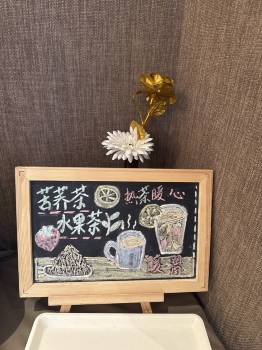 苦荞茶
热茶暖心
水果茶
暖胃